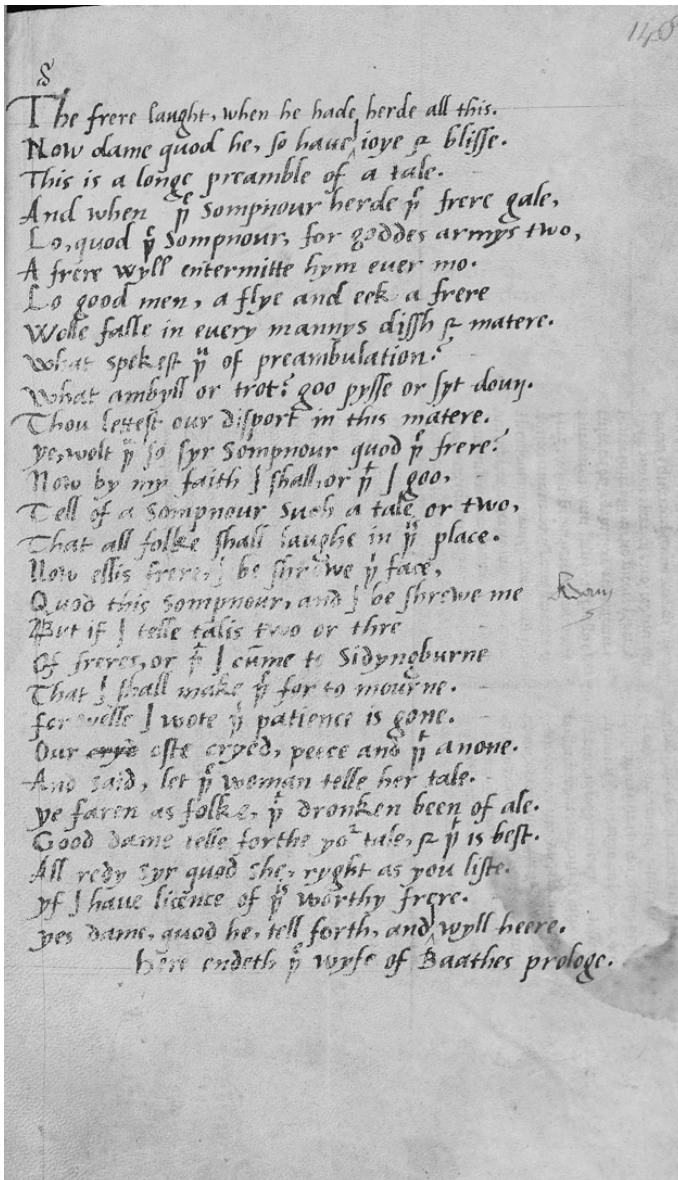 148
§
The frere laught, when he hade herde all this.
Now dame quod he, so have ioye & blisse.
This is a longe preamble of a tale.
And when þͤ Sompnour herde þͤ frere gale,
Lo, quod þͤ Sompnour, for goddes armys two,
A frere wyll entermitte hym euer mo.
Lo good men, a flye and eek a frere
Wolle falle in euery mannys dissh & matere.
what spekest þᵘ of preambulation?
what ambyll or trot? goo pysse or syt douɳ.
Thou lettest our disport in this matere.
ye, wolt þᵘ so syr Sompnour quod þͤ frere?
Now by my faith I shall, or þᵗ I goo,
Tell of a Sompnour Such a tale or two,
That all folke shall laughe in þⁱˢ place.
Now ellis frere, I be shrewe þⁱ face,
Quod this Sompnour, and I be shrewe me
But if I telle talis two or thre
Of freres, or þᵗ I cūme to Sidyngburne
That I shall make þͤ for to mourne.
for welle I wote þⁱ patience is gone.
Our crye oste cryed, peece and þᵗ anone.
And said, let þͤ woman telle her tale.
ye faren as folke, þᵗ dronken been of ale.
Good dame telle forthe yoʳ tale, & þᵗ is best.
All redy syr quod she, ryght as you liste.
yf I have licence of þⁱˢ worthy frere.
yes dame, quod he, tell forth, and wyll heere.
here endeth þͤ wyfe of Baathes prologe.